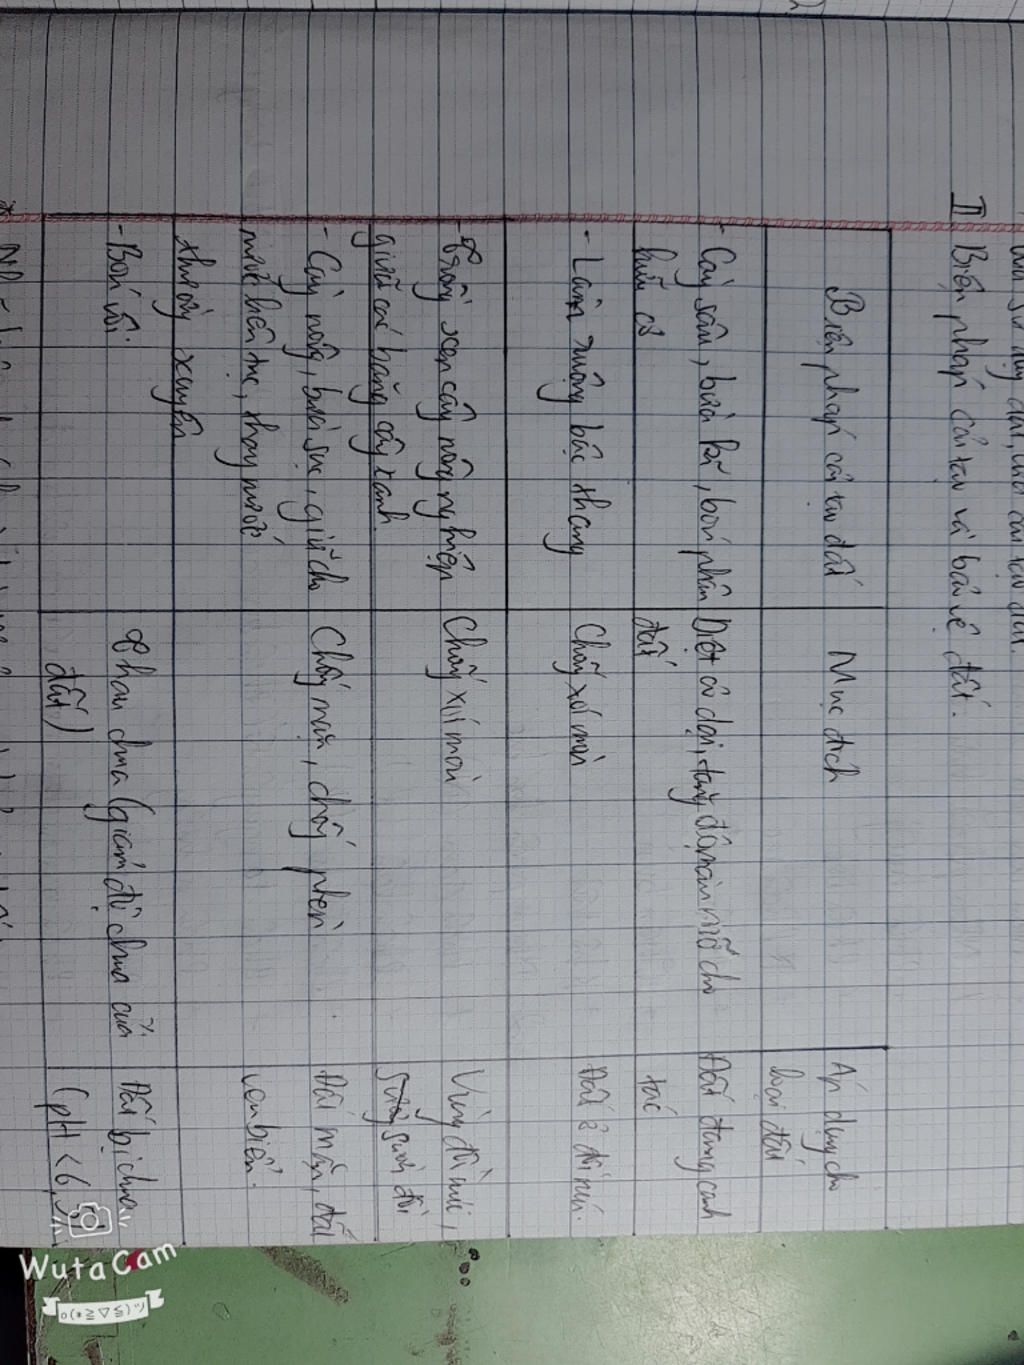 II Biện pháp cải tạo và bảo vệ đất.
Biện pháp cải tạo đất
Mục đích
Áp dụng cho
loại đất
- Cày sâu, bừa kĩ, bón phân
hữu cơ
Diệt cỏ dại, tăng độ màu mỡ cho
đất
Đất đang canh
tác
- Làm ruộng bậc thang
Chống xói mòn
Đất ở đồi núi.
- Trồng xen cây nông nghiệp
giữa các băng cây xanh
Chống xói mòn
Vùng đồi núi,
sườn đồi
- Cày nông, bừa sục, giữ cho
nước liên tục, thay nước
thường xuyên
Chống mặn, chống phèn
Đất mặn, đất
ven biển.
- Bón vôi.
Thau chua (giảm độ chua của
đất)
Đất bị chua
(pH < 6,5)
WutaCam